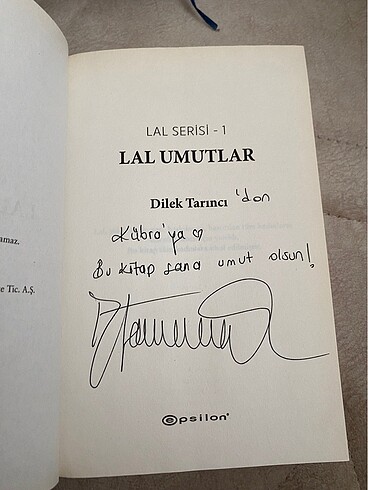 LAL SERİSİ - 1
LAL UMUTLAR
Dilek Tarıncı 'dan
Kübra'ya ♡
Bu kitap sana umut olsun!
amaz.
e Tic. A.Ş.
epsilon